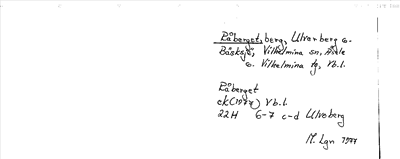 Råberget, berg, Ulverberg o.
Båsksjö, Vilhelmina sn, Åsele
o. Vilhelmina tg, Vb.l.
Råberget
ek(1977) Vb.l.
22H 6-7 c-d Ulvoberg
M. Lgn 1977